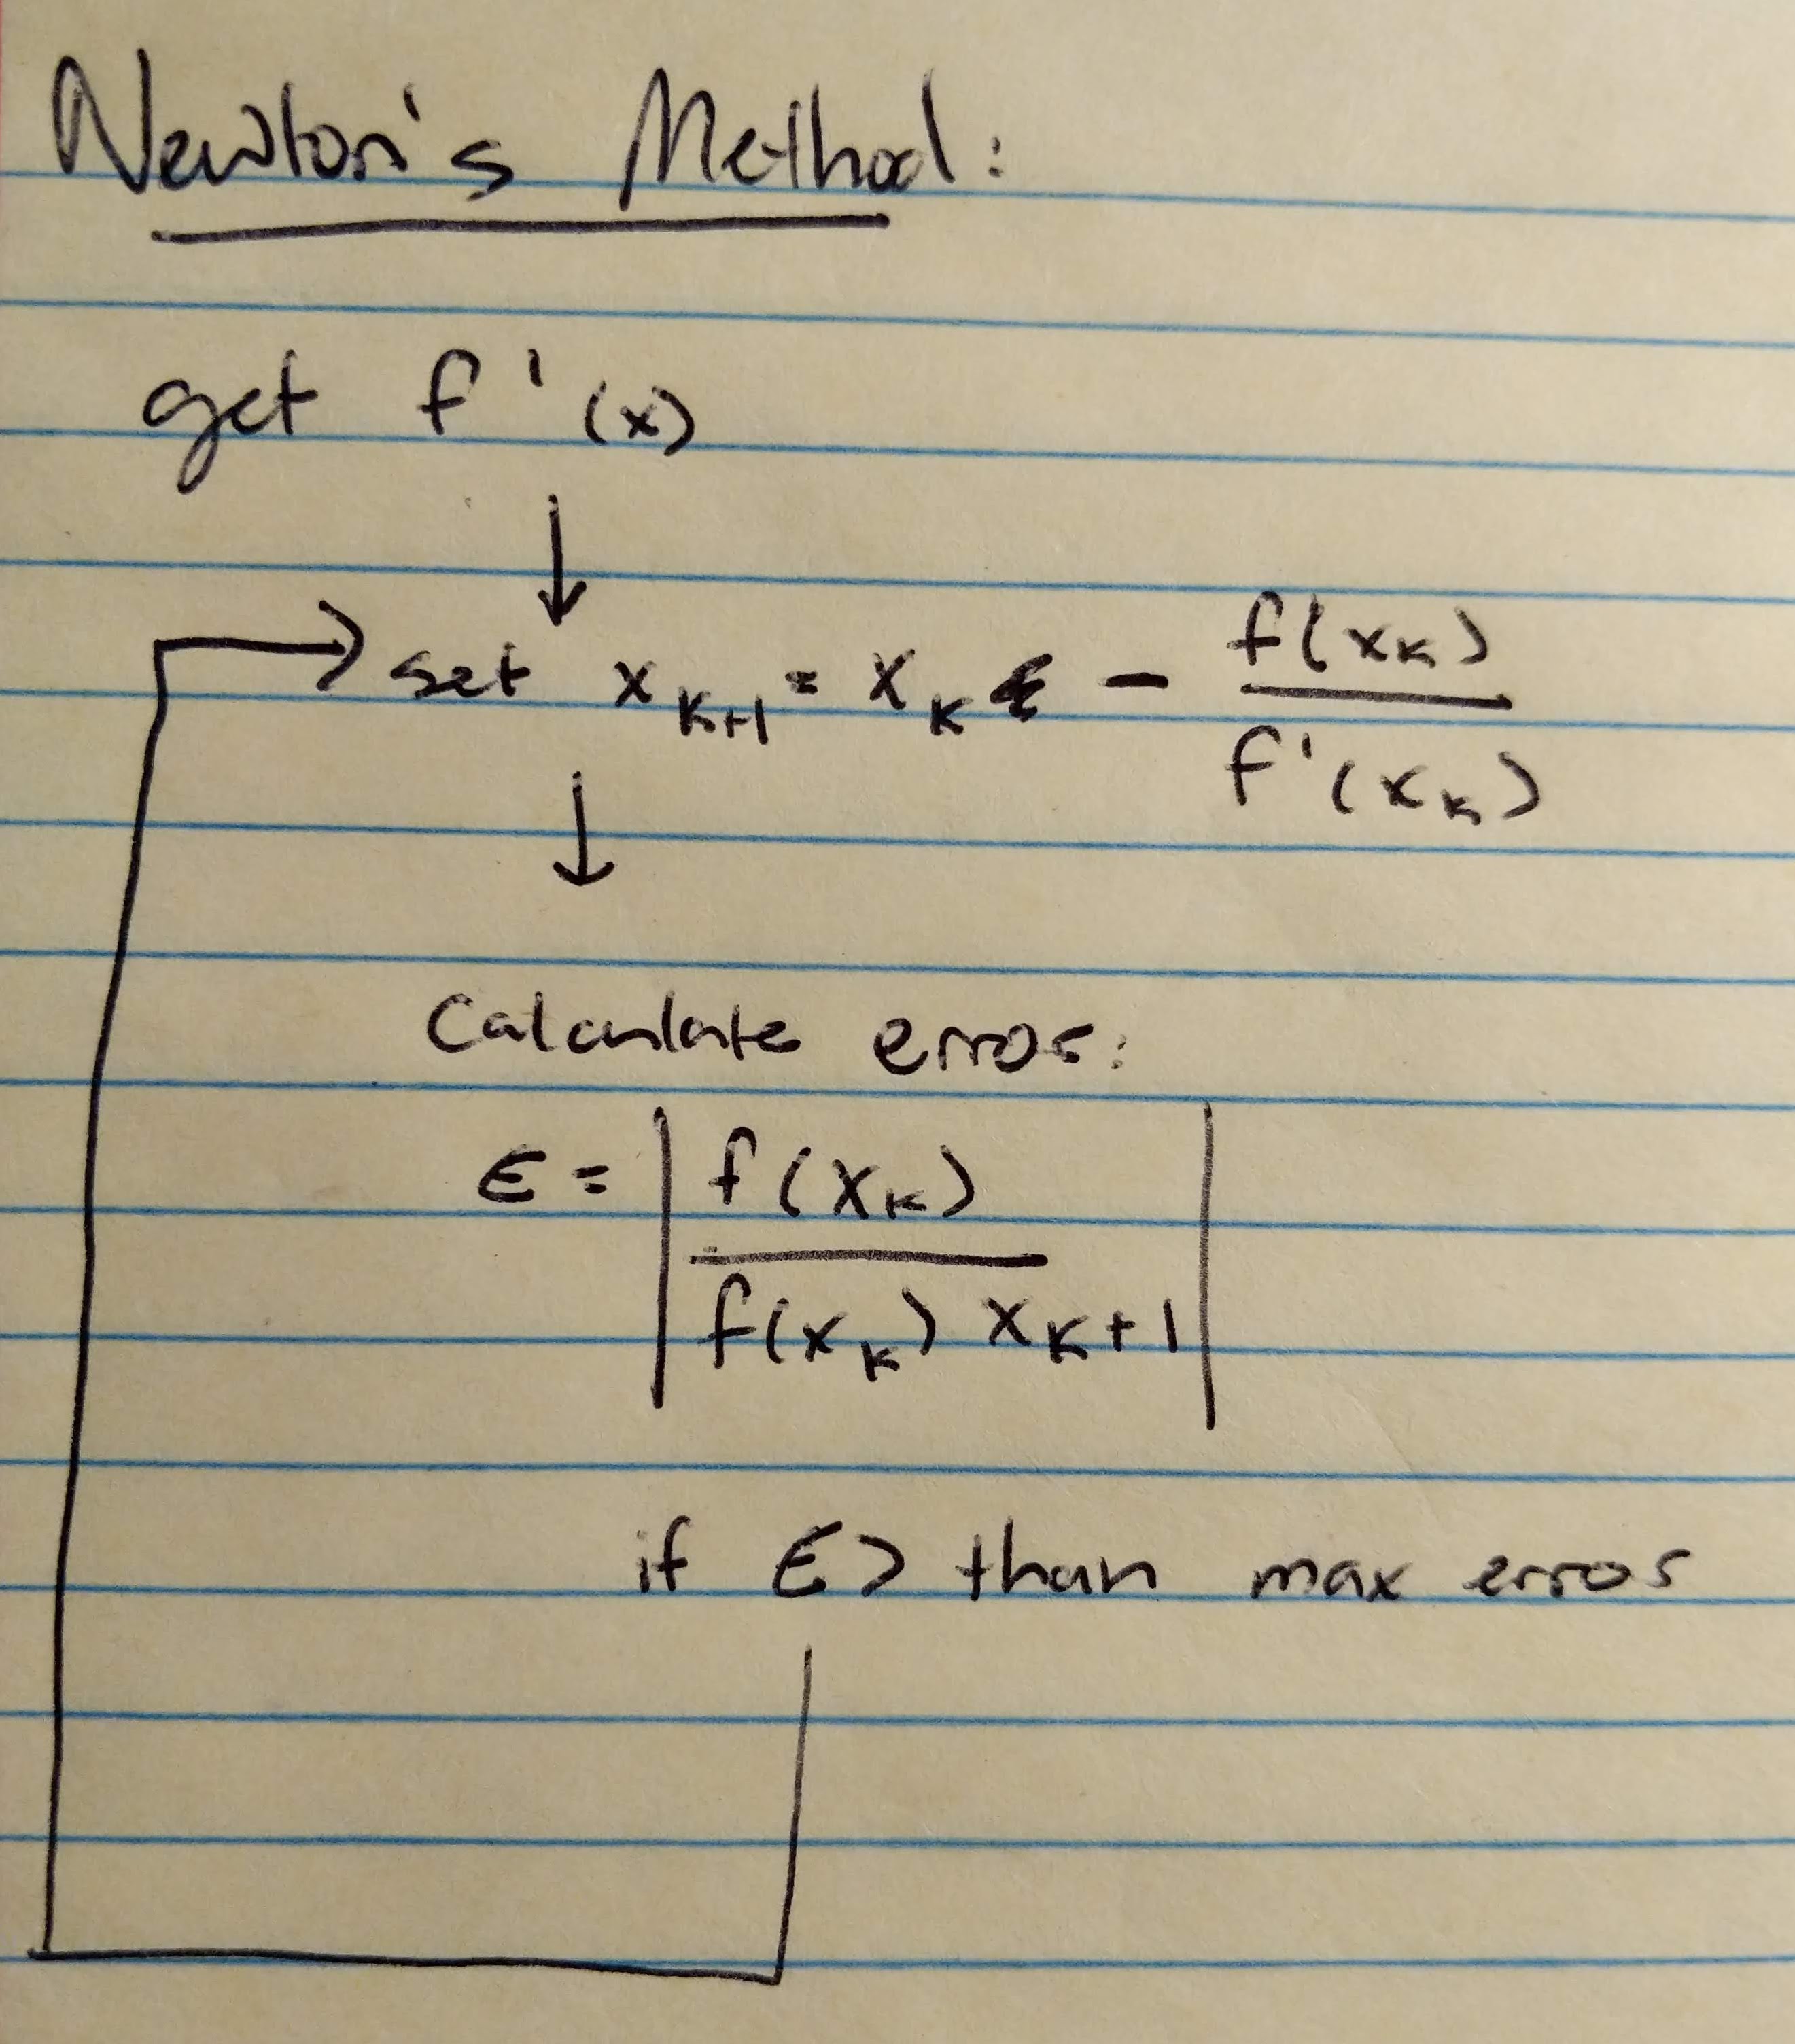 Newton's Method:
get f'(x)
↓
set x_{k+1} = x_k - f(x_k) / f'(x_k)
↓
Calculate error:
ε = | f(x_k) / f(x_k) x_{k+1} |
if ε > than max error